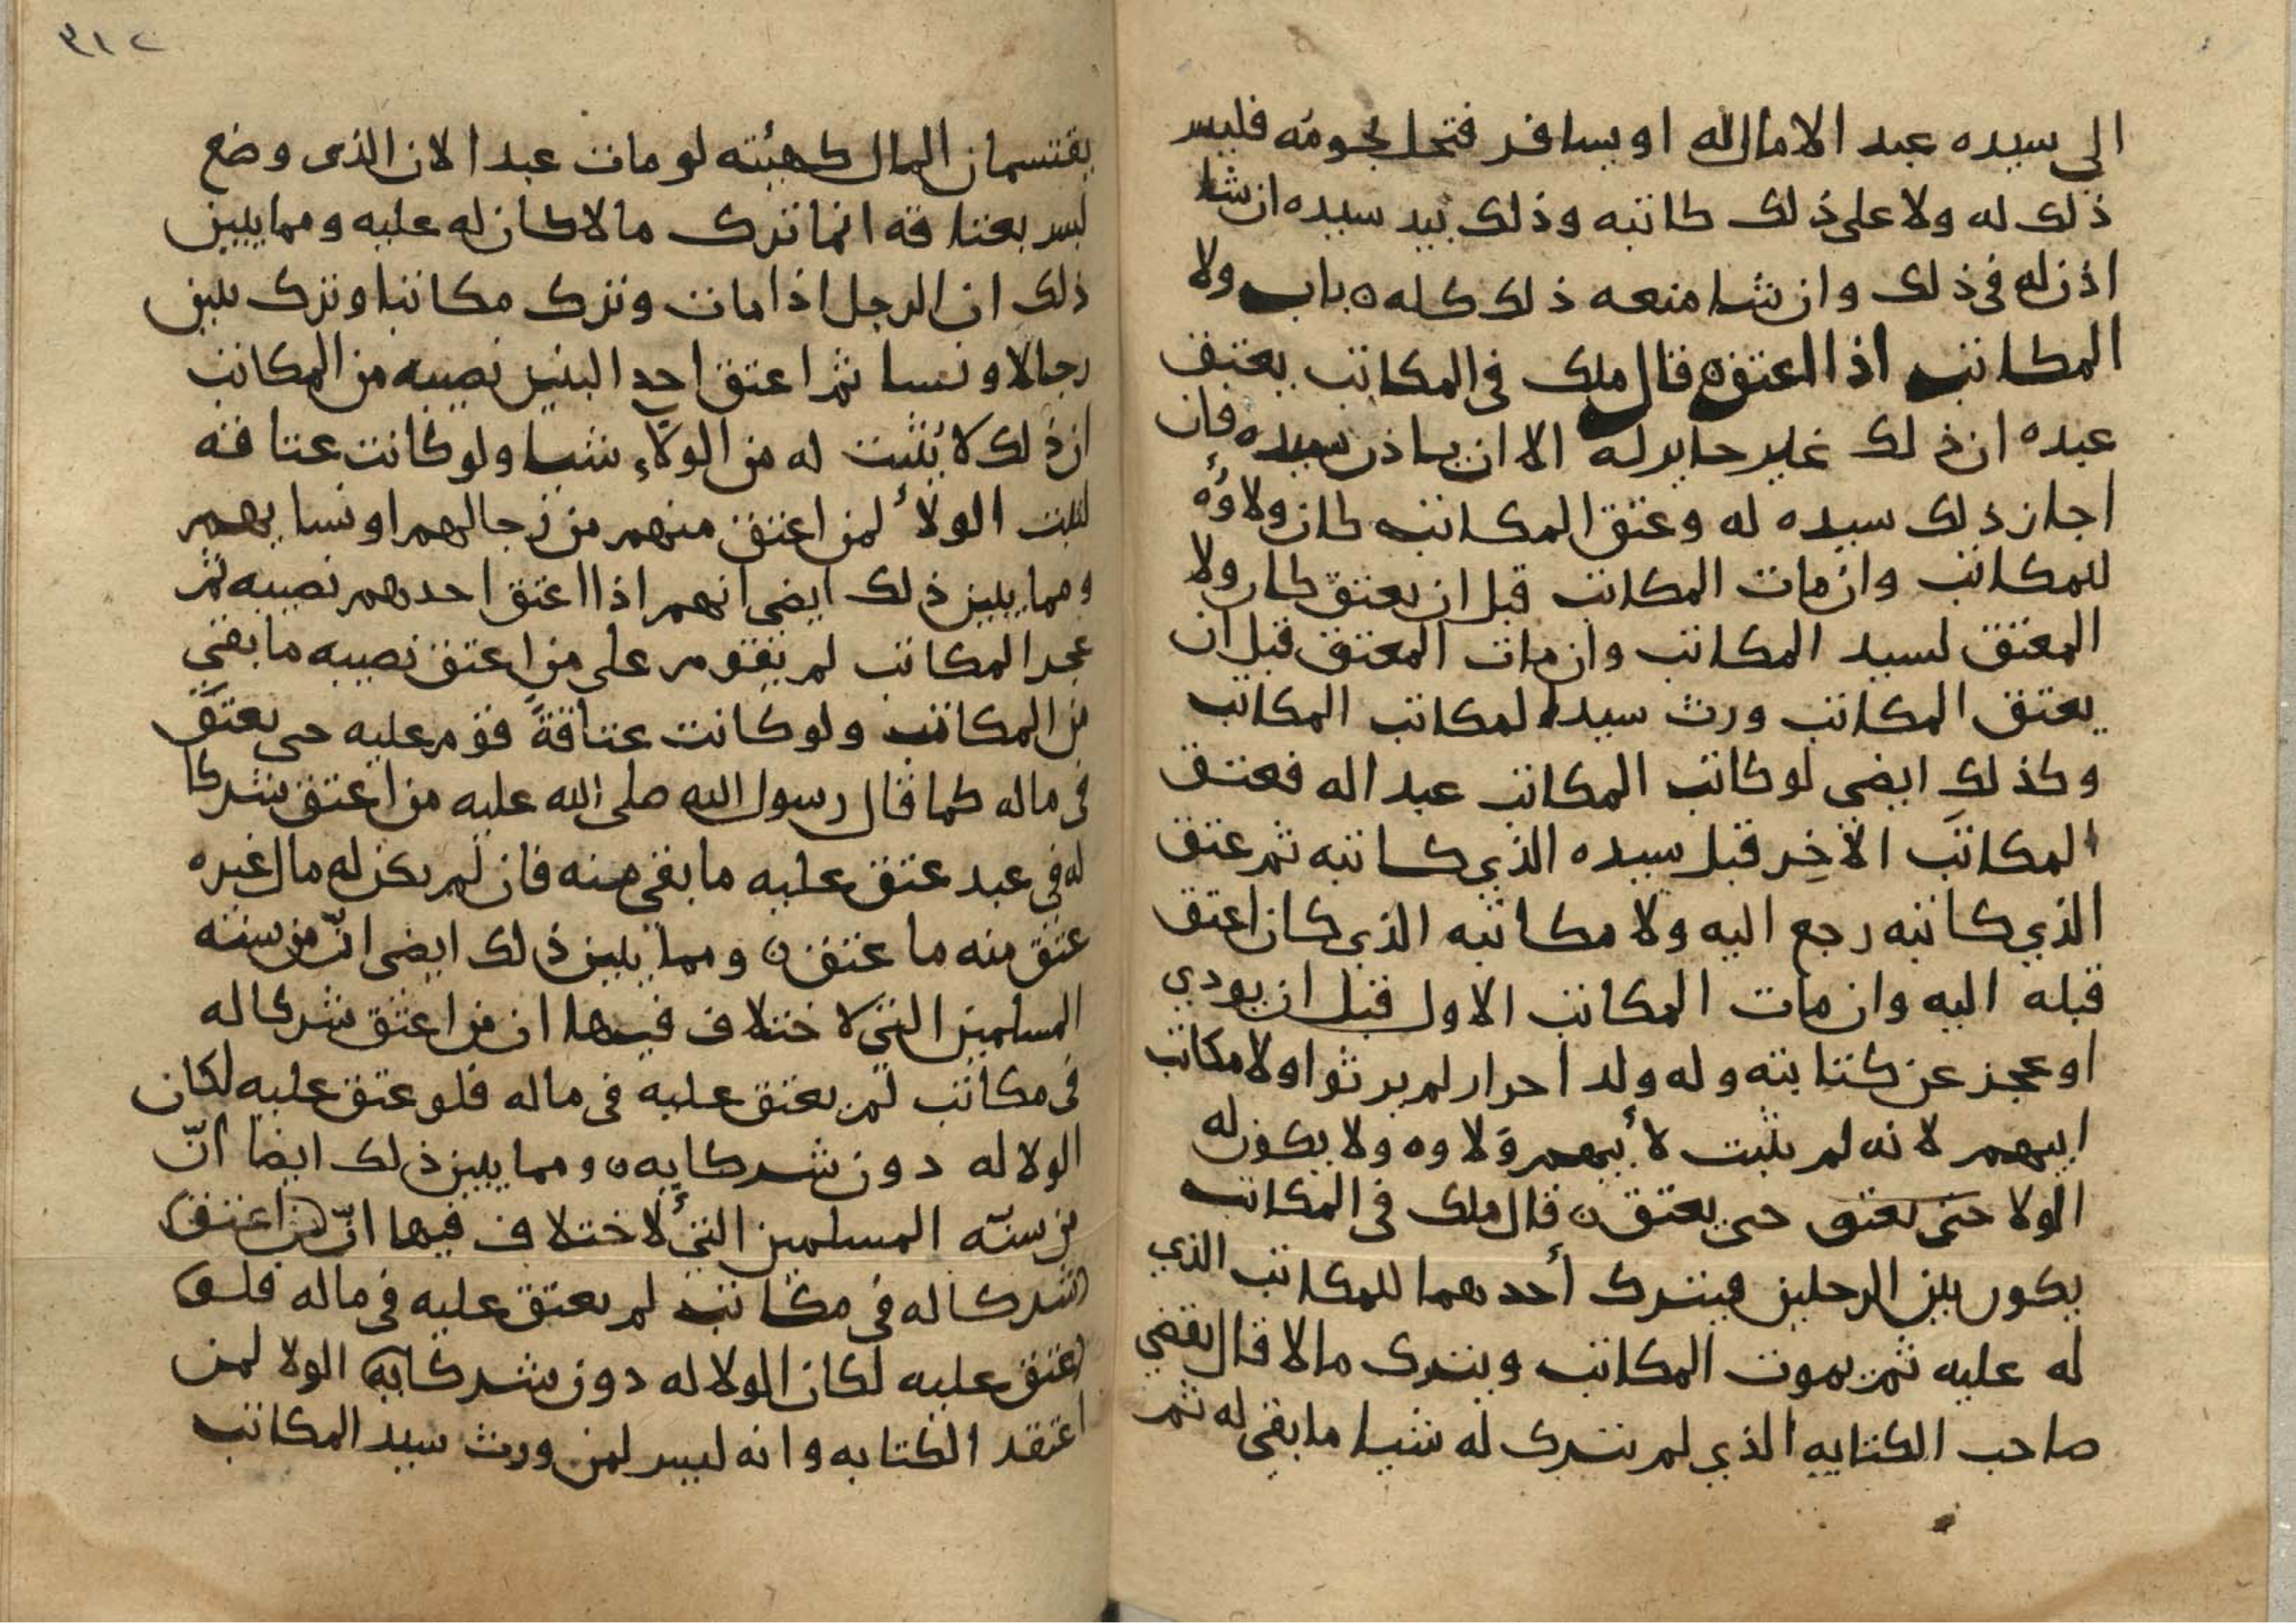 الي سيده عبد الا مال له او يسافر فتحل نجومه فليس
ذلك له ولا على ذلك كاتبه وذلك بيد سيده ان شا
اذن له في ذلك وان شا منعه ذلك كله ه باب ولا
المكاتب اذا اعتق ه قال ملك في المكاتب يعتق
عبده ان ذلك غير جايز له الا ان ياذن سيده فان
اجاز ذلك سيده له وعتق المكاتب كان ولاؤه
للمكاتب وان مات المكاتب قبل ان يعتق كان ولا
المعتق لسيد المكاتب وان مات المعتق قبل ان
يعتق المكاتب ورث سيد المكاتب المكاتب
وكذلك ايضى لو كاتب المكاتب عبدا له فعتق
المكاتب الآخر قبل سيده الذي كاتبه ثم عتق
الذي كاتبه رجع اليه ولا مكاتبه الذي كان اعتق
قبله اليه وان مات المكاتب الاول قبل ان يودي
او عجز عن كتابته وله ولد احرار لم يرثوا ولا مكاتب
ابيهم لانه لم يثبت لأبيهم ولاوه ولا يكون له
الولا حتى يعتق حتى يعتق ه قال ملك في المكاتب
يكون بين الرجلين فيترك أحدهما للمكاتب الذي
له عليه ثم يموت المكاتب ويترك مالا قال يقضي
صاحب الكتابه الذي لم يترك له شيا ما بقي له ثم
٣١٢
يقتسمان المال كهيئته لو مات عبدا لان الذي وضع
ليس بعتاقه انما ترك مالا كان له عليه ومما يبين
ذلك ان الرجل اذا مات وترك مكاتبا وترك بنين
رجالا ونسا ثم اعتق احد البنين نصيبه من المكاتب
ان ذلك لا يثبت له من الولاء شيا ولو كانت عتاقه
لثبت الولأ لمن اعتق منهم من رجالهم او نسايهم
ومما يبين ذلك ايضى انهم اذا اعتق احدهم نصيبه ثم
عجز المكاتب لم يقوم على من اعتق نصيبه ما بقي
من المكاتب ولو كانت عتاقةً قوم عليه حتى يعتق
في ماله كما قال رسول الله صلى الله عليه من اعتق شركا
له في عبد عتق عليه ما بقي منه فان لم يكن له مال غيره
عتق منه ما عتق ه ومما يبين ذلك ايضى انّ من سنه
المسلمين التي لا ختلاف فيها ان من اعتق شركا له
في مكاتب لم يعتق عليه في ماله فلو عتق عليه لكان
الولا له دون شركايه ه ومما يبين ذلك ايضا انّ
من سنّه المسلمين التي لا ختلاف فيها انّ من اعتق
شركا له في مكاتب لم يعتق عليه في ماله فلو
عتق عليه لكان الولا له دون شركايه الولا لمن
اعتقد الكتابه وانه ليس لمن ورث سيد المكاتب